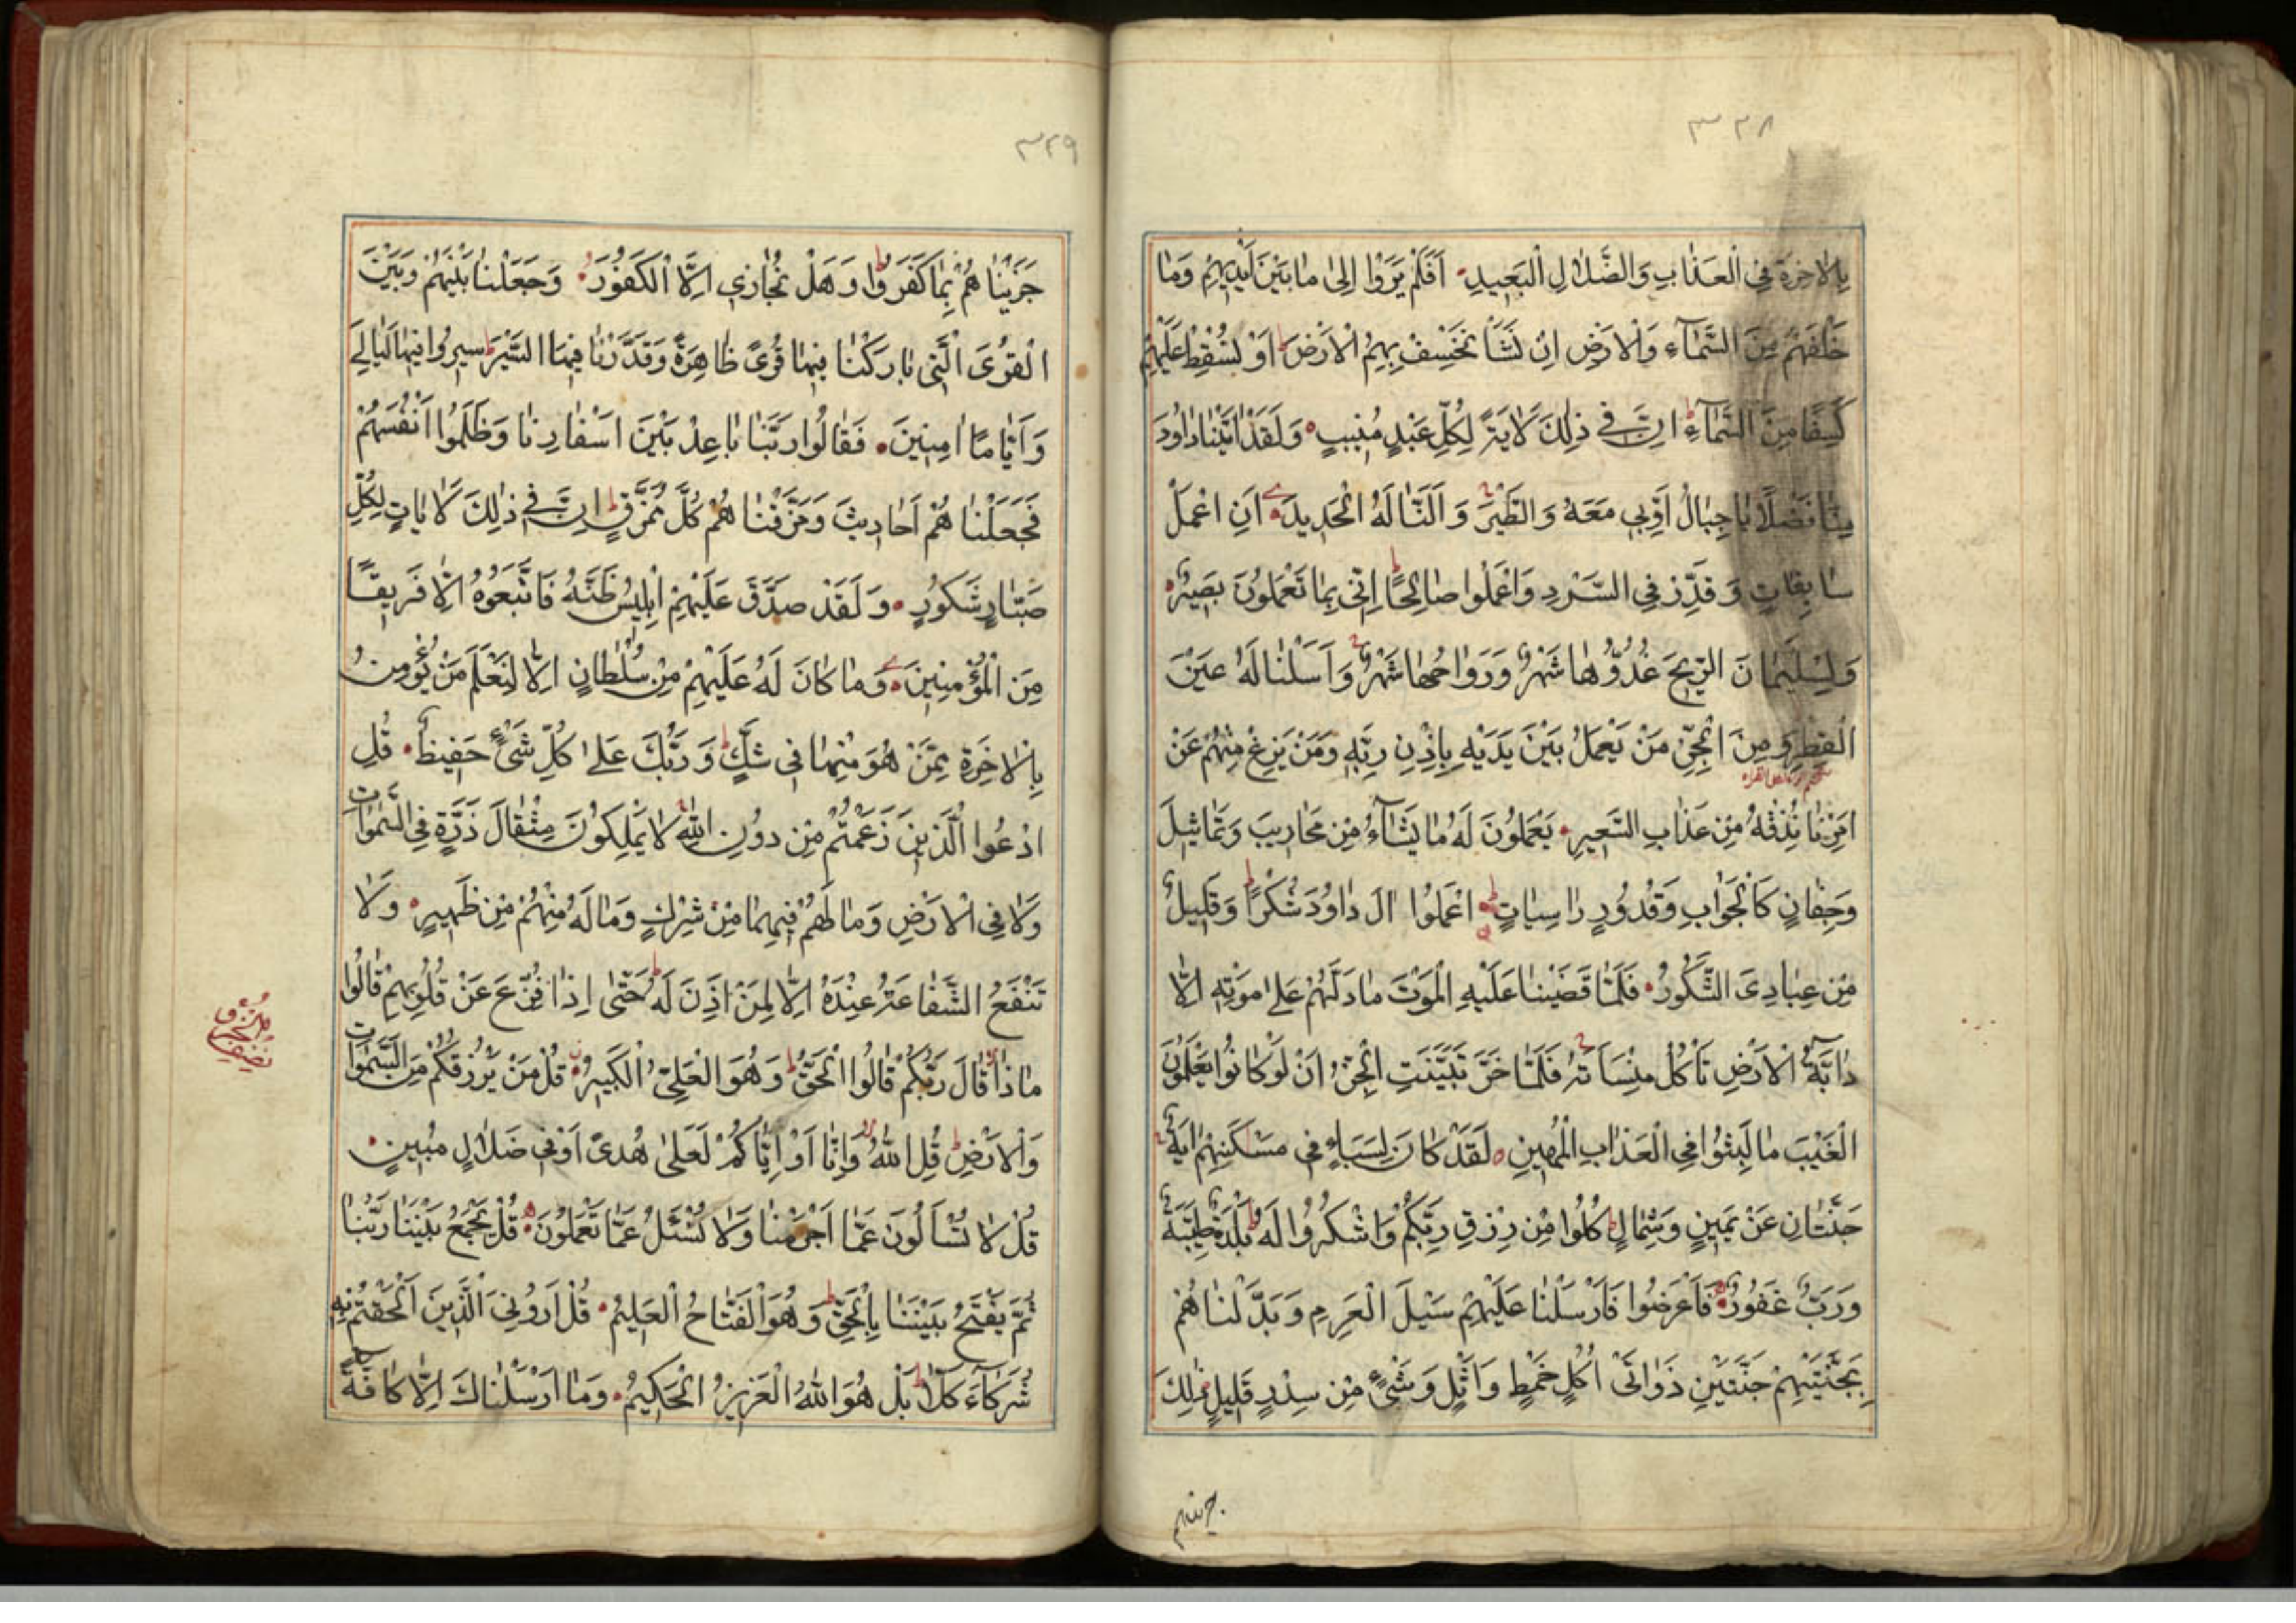 ٣٢٨
بِالْاٰخِرَةِ فِى الْعَذٰابِ وَالضَّلٰالِ الْبَعِيدِ اَفَلَمْ يَرَوْا اِلىٰ مٰا بَيْنَ اَيْدِيهِمْ وَمٰا
خَلْفَهُمْ مِنَ السَّمٰآءِ وَالْاَرْضِ اِنْ نَشَأْ نَخْسِفْ بِهِمُ الْاَرْضَ ط اَوْ نُسْقِطْ عَلَيْهِمْ
كِسَفًا مِنَ السَّمٰآءِ ط اِنَّ فِى ذٰلِكَ لَاٰيَةً لِكُلِّ عَبْدٍ مُنِيبٍ وَلَقَدْ اٰتَيْنٰا دٰاوُدَ
مِنّٰا فَضْلًا يٰا جِبٰالُ اَوِّبِى مَعَهُ وَالطَّيْرَ وَاَلَنّٰا لَهُ الْحَدِيدَ اَنِ اعْمَلْ
سٰابِغٰاتٍ وَقَدِّرْ فِى السَّرْدِ وَاعْمَلُوا صٰالِحًا ط اِنّى بِمٰا تَعْمَلُونَ بَصِيرٌ
وَلِسُلَيْمٰانَ الرِّيحَ غُدُوُّهٰا شَهْرٌ وَرَوٰاحُهٰا شَهْرٌ وَاَسَلْنٰا لَهُ عَيْنَ
الْقِطْرِ وَمِنَ الْجِنِّ مَنْ يَعْمَلُ بَيْنَ يَدَيْهِ بِاِذْنِ رَبِّهِ وَمَنْ يَزِغْ مِنْهُمْ عَنْ
اَمْرِنٰا نُذِقْهُ مِنْ عَذٰابِ السَّعِيرِ يَعْمَلُونَ لَهُ مٰا يَشٰآءُ مِنْ مَحٰارِيبَ وَتَمٰاثِيلَ
وَجِفٰانٍ كَالْجَوٰابِ وَقُدُورٍ رٰاسِيٰاتٍ ط اعْمَلُوا اٰلَ دٰاوُدَ شُكْرًا ط وَقَلِيلٌ
مِنْ عِبٰادِىَ الشَّكُورُ فَلَمّٰا قَضَيْنٰا عَلَيْهِ الْمَوْتَ مٰا دَلَّهُمْ عَلىٰ مَوْتِهِ اِلّٰا
دٰابَّةُ الْاَرْضِ تَأْكُلُ مِنْسَأَتَهُ فَلَمّٰا خَرَّ تَبَيَّنَتِ الْجِنُّ اَنْ لَوْ كٰانُوا يَعْلَمُونَ
الْغَيْبَ مٰا لَبِثُوا فِى الْعَذٰابِ الْمُهِينِ لَقَدْ كٰانَ لِسَبَاءٍ فِى مَسْكَنِهِمْ اٰيَةٌ
جَنَّتٰانِ عَنْ يَمِينٍ وَشِمٰالٍ ط كُلُوا مِنْ رِزْقِ رَبِّكُمْ وَاشْكُرُوا لَهُ ط بَلْدَةٌ طَيِّبَةٌ
وَرَبٌّ غَفُورٌ فَاَعْرَضُوا فَاَرْسَلْنٰا عَلَيْهِمْ سَيْلَ الْعَرِمِ وَبَدَّلْنٰاهُمْ
بِجَنَّتَيْهِمْ جَنَّتَيْنِ ذَوٰاتَىْ اُكُلٍ خَمْطٍ وَاَثْلٍ وَشَىْءٍ مِنْ سِدْرٍ قَلِيلٍ ذٰلِكَ
جزيناهم
٣٢٩
جَزَيْنٰاهُمْ بِمٰا كَفَرُوا ط وَهَلْ نُجٰازِى اِلَّا الْكَفُورَ وَجَعَلْنٰا بَيْنَهُمْ وَبَيْنَ
الْقُرَى الَّتِى بٰارَكْنٰا فِيهٰا قُرًى ظٰاهِرَةً وَقَدَّرْنٰا فِيهَا السَّيْرَ ط سِيرُوا فِيهٰا لَيٰالِىَ
وَاَيّٰامًا اٰمِنِينَ فَقٰالُوا رَبَّنٰا بٰاعِدْ بَيْنَ اَسْفٰارِنٰا وَظَلَمُوا اَنْفُسَهُمْ
فَجَعَلْنٰاهُمْ اَحٰادِيثَ وَمَزَّقْنٰاهُمْ كُلَّ مُمَزَّقٍ ط اِنَّ فِى ذٰلِكَ لَاٰيٰاتٍ لِكُلِّ
صَبّٰارٍ شَكُورٍ وَلَقَدْ صَدَّقَ عَلَيْهِمْ اِبْلِيسُ ظَنَّهُ فَاتَّبَعُوهُ اِلّٰا فَرِيقًا
مِنَ الْمُؤْمِنِينَ وَمٰا كٰانَ لَهُ عَلَيْهِمْ مِنْ سُلْطٰانٍ اِلّٰا لِنَعْلَمَ مَنْ يُؤْمِنُ
بِالْاٰخِرَةِ مِمَّنْ هُوَ مِنْهٰا فِى شَكٍّ ط وَرَبُّكَ عَلىٰ كُلِّ شَىْءٍ حَفِيظٌ قُلِ
ادْعُوا الَّذِينَ زَعَمْتُمْ مِنْ دُونِ اللّٰهِ لٰا يَمْلِكُونَ مِثْقٰالَ ذَرَّةٍ فِى السَّمٰوٰاتِ
وَلٰا فِى الْاَرْضِ وَمٰا لَهُمْ فِيهِمٰا مِنْ شِرْكٍ وَمٰا لَهُ مِنْهُمْ مِنْ ظَهِيرٍ وَلٰا
تَنْفَعُ الشَّفٰاعَةُ عِنْدَهُ اِلّٰا لِمَنْ اَذِنَ لَهُ ط حَتّٰى اِذٰا فُزِّعَ عَنْ قُلُوبِهِمْ قٰالُوا
مٰا ذٰا قٰالَ رَبُّكُمْ قٰالُوا الْحَقَّ ط وَهُوَ الْعَلِىُّ الْكَبِيرُ قُلْ مَنْ يَرْزُقُكُمْ مِنَ السَّمٰوٰاتِ
وَالْاَرْضِ ط قُلِ اللّٰهُ وَاِنّٰا اَوْ اِيّٰاكُمْ لَعَلىٰ هُدًى اَوْ فِى ضَلٰالٍ مُبِينٍ
قُلْ لٰا تُسْأَلُونَ عَمّٰا اَجْرَمْنٰا وَلٰا نُسْئَلُ عَمّٰا تَعْمَلُونَ قُلْ يَجْمَعُ بَيْنَنٰا رَبُّنٰا
ثُمَّ يَفْتَحُ بَيْنَنٰا بِالْحَقِّ ط وَهُوَ الْفَتّٰاحُ الْعَلِيمُ قُلْ اَرُونِىَ الَّذِينَ اَلْحَقْتُمْ بِهِ
شُرَكٰآءَ كَلّٰا ط بَلْ هُوَ اللّٰهُ الْعَزِيزُ الْحَكِيمُ وَمٰا اَرْسَلْنٰاكَ اِلّٰا كٰافَّةً